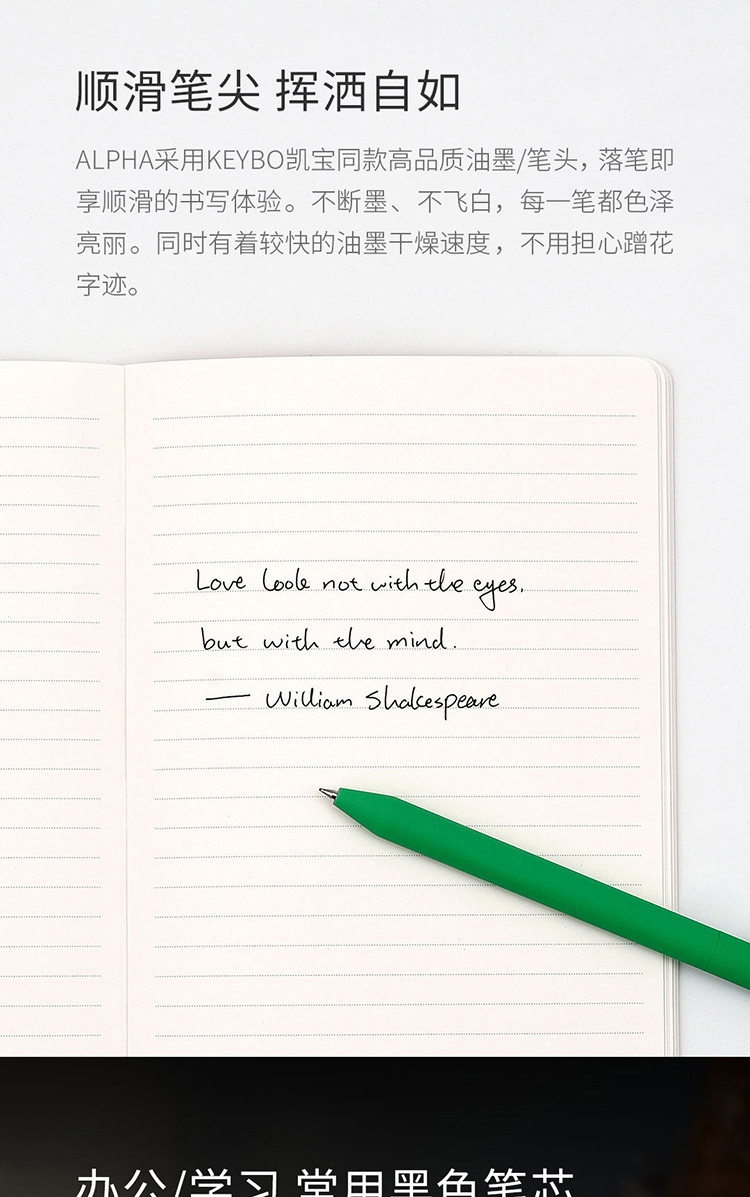 顺滑笔尖 挥洒自如
ALPHA采用KEYBO凯宝同款高品质油墨/笔头，落笔即
享顺滑的书写体验。不断墨、不飞白，每一笔都色泽
亮丽。同时有着较快的油墨干燥速度，不用担心蹭花
字迹。
Love look not with the eyes,
but with the mind.
— William Shakespeare
办公/学习 常用黑色笔芯